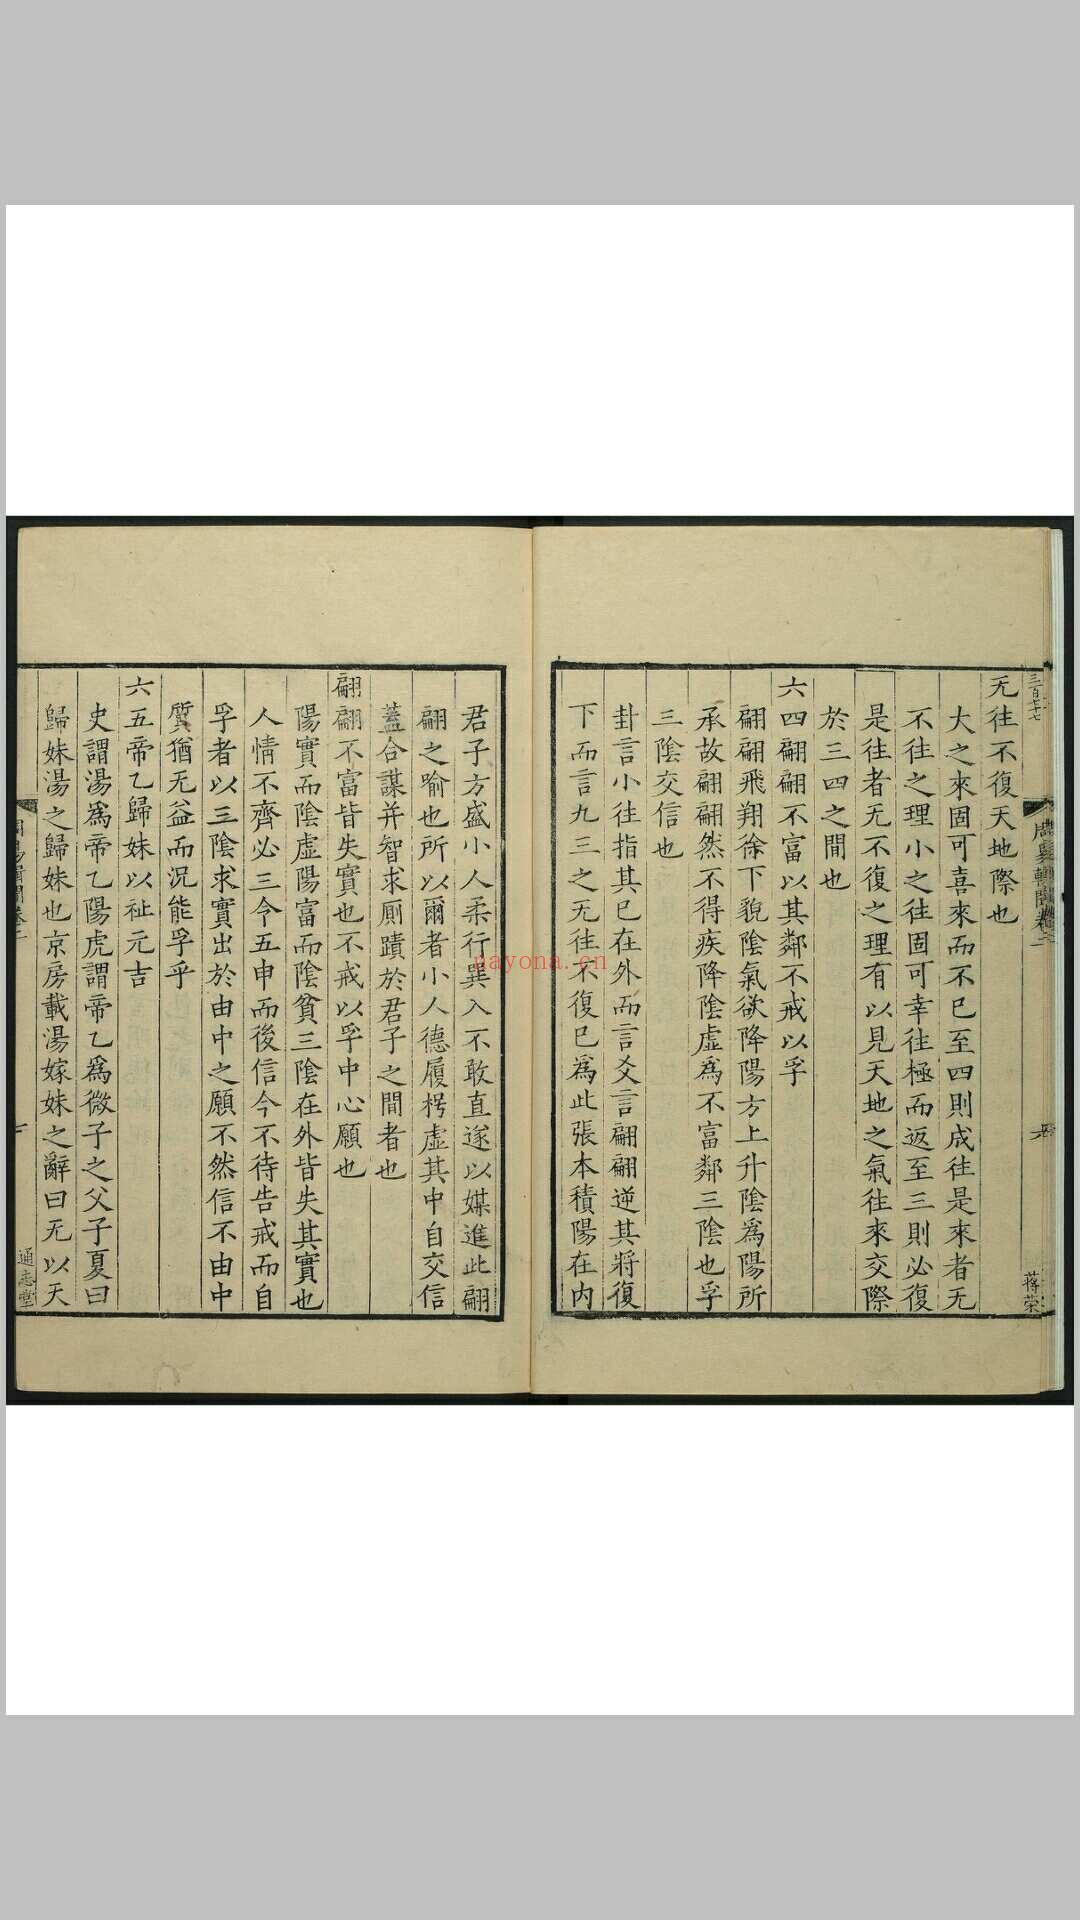 三百七十七
周易輯聞卷二
六
蔣榮
无往不復天地際也
大之來固可喜來而不已至四則成往是來者无
不往之理小之往固可幸往極而返至三則必復
是往者无不復之理有以見天地之氣往來交際
於三四之間也
六四翩翩不富以其鄰不戒以孚
翩翩飛翔徐下貌陰氣欲降陽方上升陰為陽所
承故翩翩然不得疾降陰虛為不富鄰三陰也孚
三陰交信也
卦言小往指其已在外而言爻言翩翩逆其將復
下而言九三之无往不復已為此張本積陽在內
君子方盛小人柔行巽入不敢直遂以媒進此翩
翩之喻也所以爾者小人德履枵虛其中自交信
蓋合謀并智求厠蹟於君子之間者也
翩翩不富皆失實也不戒以孚中心願也
陽實而陰虛陽富而陰貧三陰在外皆失其實也
人情不齊必三令五申而後信今不待告戒而自
孚者以三陰求實出於由中之願不然信不由中
質猶无益而況能孚乎
六五帝乙歸妹以祉元吉
史謂湯為帝乙陽虎謂帝乙為微子之父子夏曰
歸妹湯之歸妹也京房載湯嫁妹之辭曰无以天
通志堂
nayona.cn